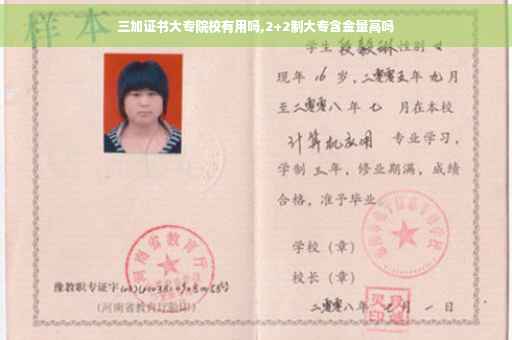 三加证书大专院校有用吗,2+2制大专含金量高吗
样本
学生段毅琳性别女
现年16岁,二零零五年九月
至二零零八年七月在本校
计算机应用 专业学习,
学制三年,修业期满,成绩
合格,准予毕业
学校(章)
校长(章)
二零零八年七月一日
河南省教育厅
豫教职专证字
(河南省教育厅验印)